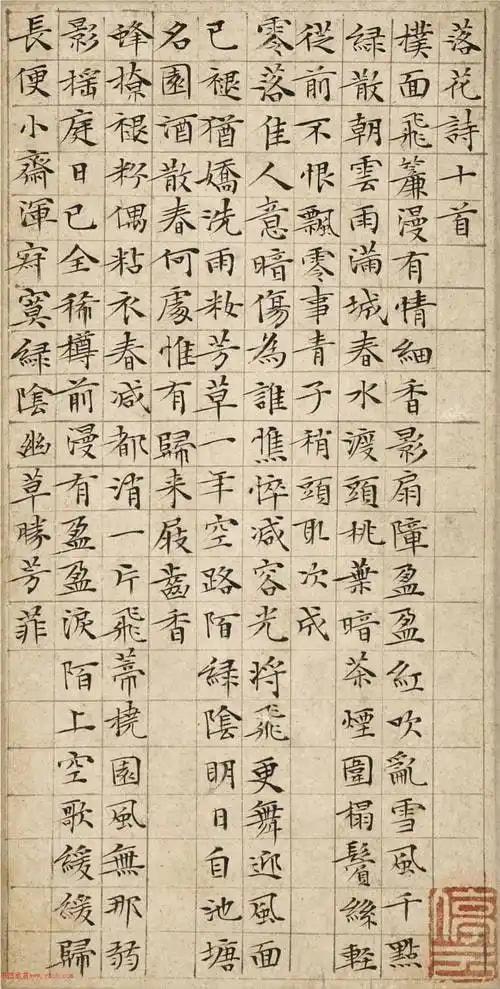 落花詩十首
樸面飛簾漫有情細香影扇障盈盈紅吹亂雪風千點
綠散朝雲雨滿城春水渡頭桃葉暗茶煙圍榻鬢絲輕
從前不恨飄零事青子稍頭取次成
零落佳人意暗傷為誰憔悴減容光將飛更舞迎風面
已褪猶嬌洗雨妝芳草一年空路陌綠陰明日自池塘
名園酒散春何處惟有歸来屐齒香
蜂撩褪粉偶粘衣春減都消一片飛蒂橈園風無那弱
影摇庭日已全稀樽前漫有盈盈淚陌上空歌緩緩歸
長便小齋渾寂寞綠陰幽草勝芳菲